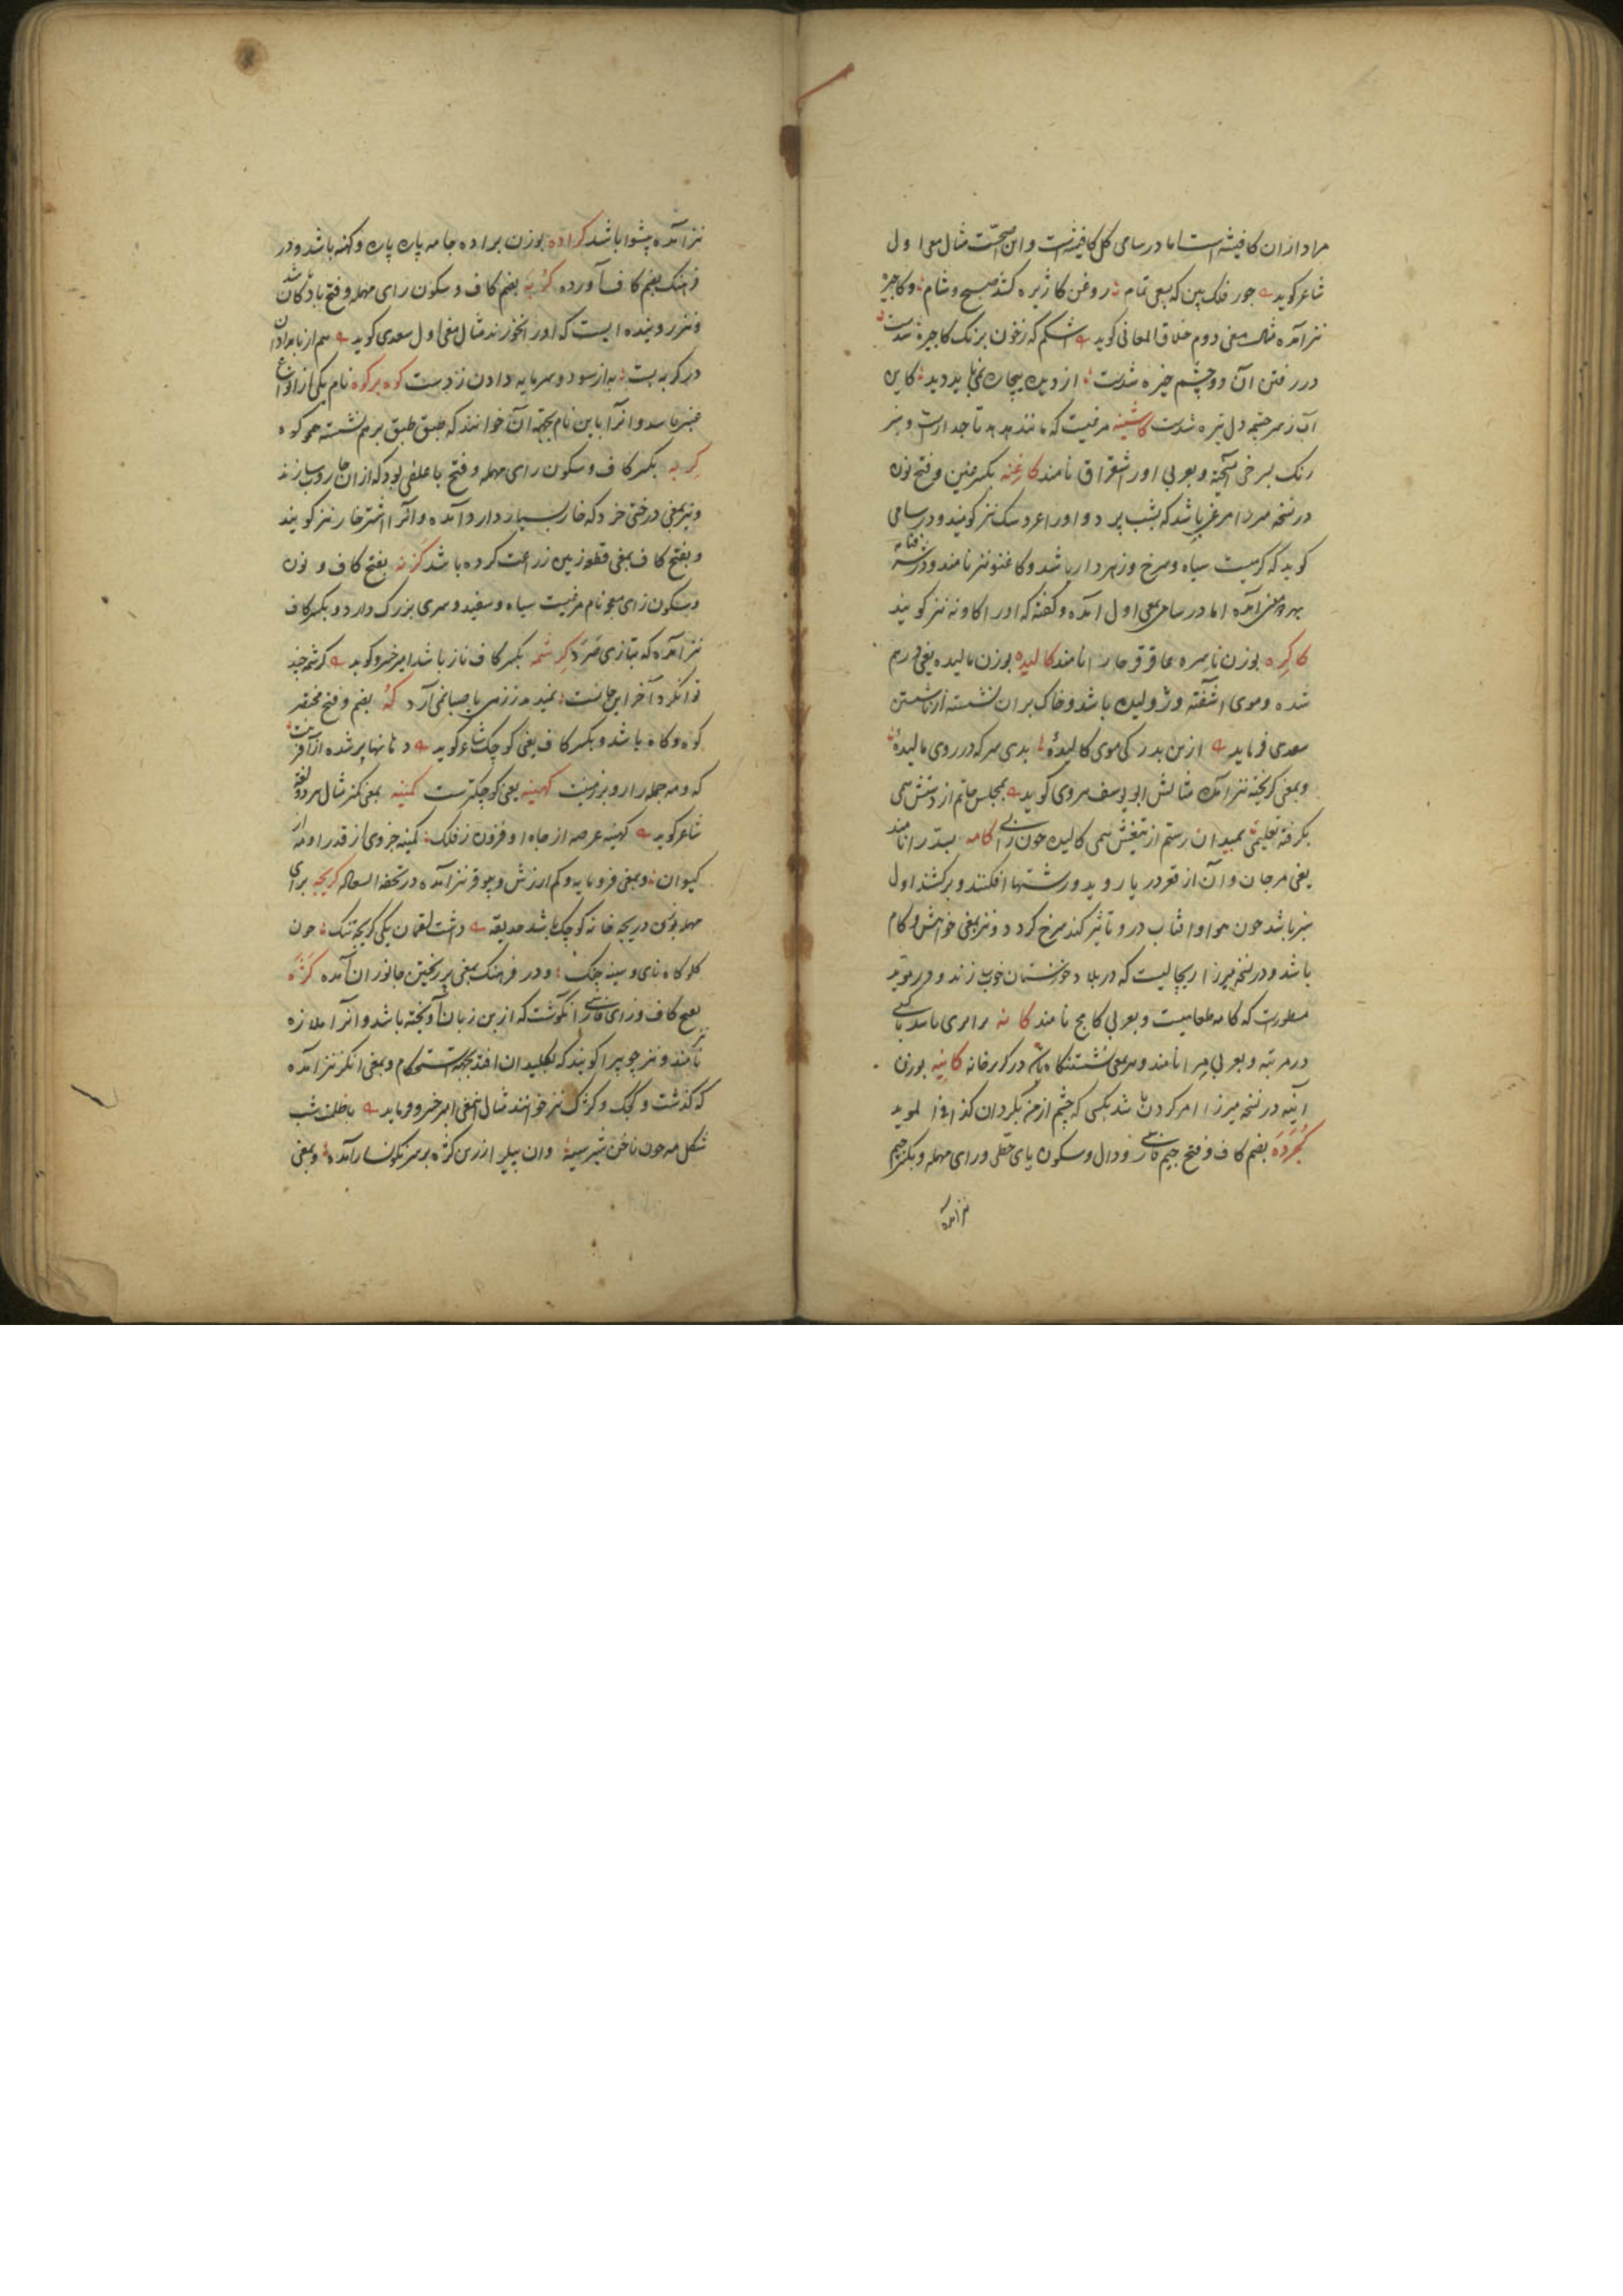 مراد ازان کافیشه است اما در سامی کل کافیشه است و این صحّت مثال معنی اول
شاعر کوید جور فلک بین که بسعی تمام روغن کاژیره کشد صبح و شام و کاجیره
نیز آمده مثال معنی دوم خلاق المعانی کوید اشکم که زخون برنک کاجیره شدست
در رفتن آن دو چشم خیره شدست از دیدن بیچاره نمی باید دید کاین
آب ز سر چشمه دل تیره شدست کاشینه مرغیست که مانند هدهد تاجدارست و سبز
رنک بسرخی آمیخته و بعربی اورا شقراق نامند کارغنه بکسر غین و فتح نون
در نسخه میرزا مرغی باشد که بشب پرد و اورا مرد سنک نیز کویند و در سامی
کوید که کرمیست سیاه و سرخ و زهردار باشد و کاغنو نیز نامند و در
بهر دو معنی آمده اما در سامی بمعنی اول آمده و کفته که اورا کاونه نیز کویند
کاکره بوزن ناسره عاقرقرحا را نامند کالیده بوزن مالیده یعنی درهم
شده و موی آشفته و ژولیده باشد و خاک بران نشسته از ناشستن
سعدی فرماید ازین بدرکی موی کالیده بدی سرکه در روی مالیده
و بمعنی کریخته نیز آمده مثالش ابو یوسف هروی کوید بمجلس حاتم از دستش همی
بکرفته تعلیمی بمیدان رستم از تیغش همی کالیده چون زالی کامه بسّد را نامند
یعنی مرجان و آن از قعر دریا روید و رشتها افکنند و برکشند اول
سبز باشد چون هوا و آفتاب درو تاثیر کند سرخ کردد و نیز بمعنی خواهش و کام
باشد و در نسخه میرزا ریچالیست که در بلاد خوزستان خوب زند و در مؤید
مسطورست که کامه طعامیست و بعربی کامخ نامند کانه برابری باشد باکسی
در مرتبه و بعربی نامند و بمعنی نشستنکاه در کریرخانه کانیه بوزن
آنیه در نسخه میرزا امر کردن باشد بکسی که چشم از من بکردان کذا فی المؤید
کجرده بضم کاف و فتح جیم فارسی و دال و سکون یای حطی و رای مهمله و بکسر جیم
نیز آمده
نیز آمده پیشوا باشد کراده بوزن براده جامه پاره پاره و کهنه باشد و در
فرهنک بضم کاف آورده کربه بضم کاف و سکون رای مهمله و فتح با دکان باشد
و نیز روینده ایست که اورا خورند مثال معنی اول سعدی کوید هم از بامدادان
در کربه بست به از سود و سرمایه دادن ز دست کوه برکوه نام یکی از انواع
عنبر باشد و آنرا باین نام بجهة آن خوانند که طبق طبق بر هم نشسته همچو کوه
کربه بکسر کاف و سکون رای مهمله و فتح با علفی بود که ازان جاروب سازند
و نیز بمعنی درختی خرد که خار بسیار دارد آمده و آنرا اشترخار نیز کویند
و بفتح کاف بمعنی قطعه زمین زراعت کرده باشد کزنه بفتح کاف و نون
و سکون زای معجمه نام مرغیست سیاه و سفید و سری بزرک دارد و بکسر کاف
نیز آمده که بتازی صرد کرشمه بکسر کاف ناز باشد امیر خسرو کوید کرشمه چند
توانکرد آخر این چانست نمیدمد ز زمین یا صبا نمی آرد که بضم و فتح مختصر
کوه و کاه باشد و بکسر کاف یعنی کوچک شاعر کوید دهانها پر شده از آفرینت
که و مه جمله را رو بر زمینت کهینه یعنی کوچکتر است کمینه بمعنی کمتر مثال هر دو لغة
شاعر کوید کهینه عرصه از جاه او فزون ز فلک کمینه جزوی از قدر او مه از
کیوان و بمعنی فرومایه و کم ارزش و بیوقر نیز آمده در تحفة السعاده کریجه برای
مهمله بوزن دریچه خانه کوچک باشد حدیقه داشت لقمان یکی کریجه تنک چون
کلوکاه نای و سینه چنک و در فرهنک بمعنی پر ریختن جانوران آمده کژه
بفتح کاف و زای فارسی را نکوشت که از بن زبان آویخته باشد و آنرا ملازه
نیز نامند و نیز چوبیرا کویند که بکلیدان افتد بجهة استحکام و بمعنی انکژ نیز آمده
که کذشت و کجک و کژک نیز خوانند مثال این معنی امیر خسرو فرماید با ظلمت شب
شکل مه چون ناخن شیر سیه وان پیل از زرین کژه بر سر نکونسار آمده و بمعنی